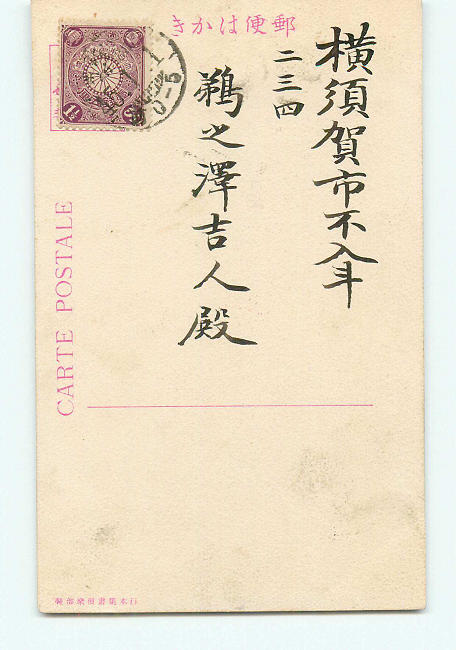 郵便はかき
横須賀市不入斗
二三四
鵜之澤吉人殿
CARTE POSTALE